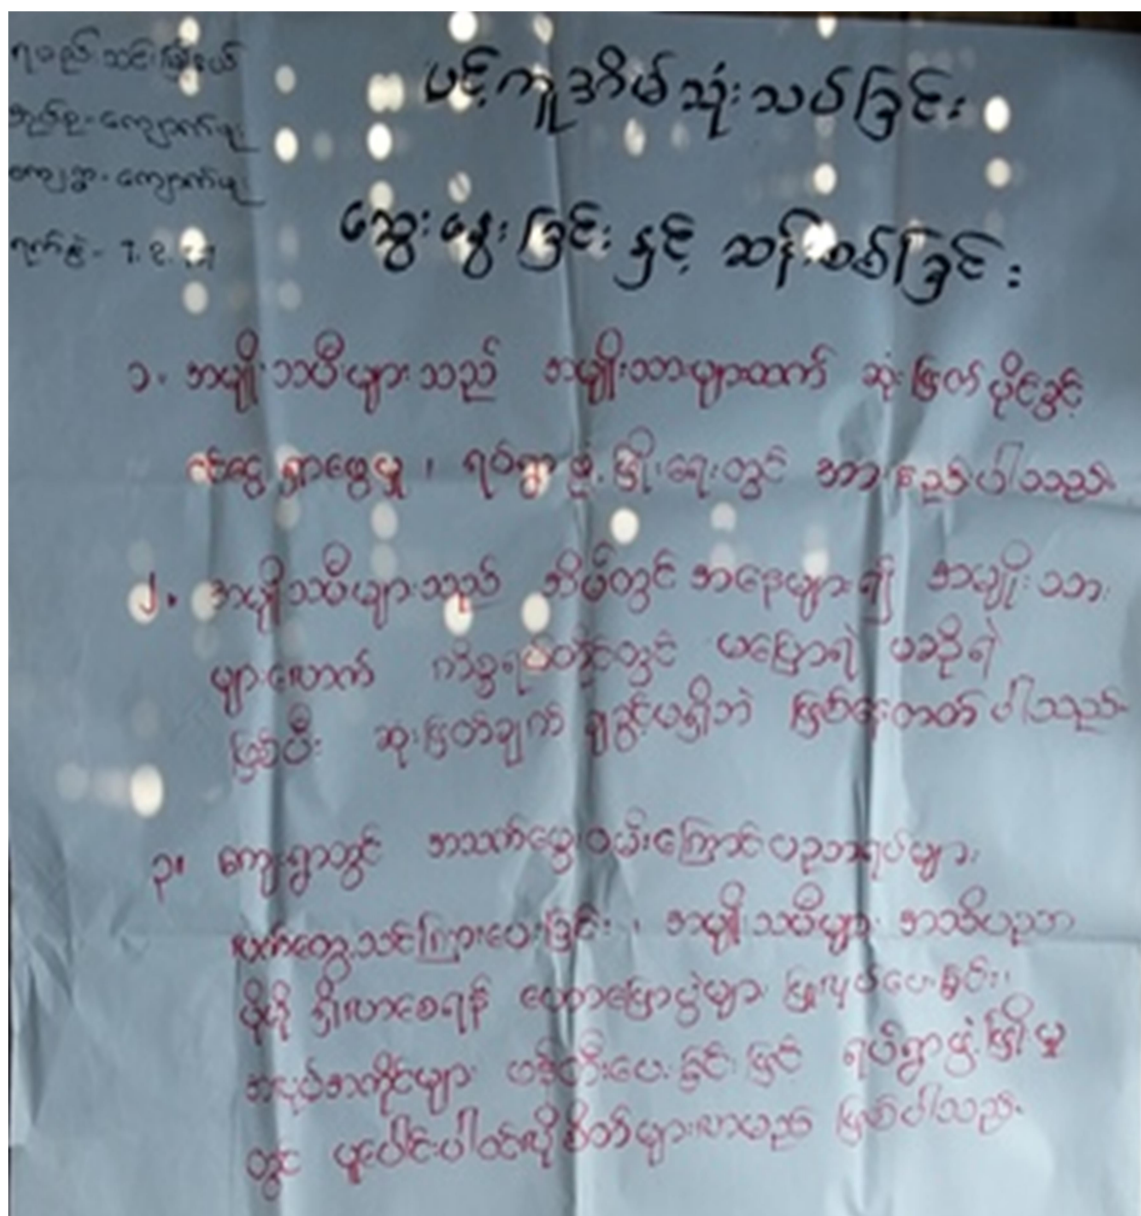 ရမည်းသင်းမြို့နယ်
အုပ်စု - ကျောက်ဖူး
ကျေးရွာ - ကျောက်ဖူး
ရက်စွဲ - ၇.၃.၁၂
ပင့်ကူအိမ်သုံးသပ်ခြင်း
ဆွေးနွေးခြင်းနှင့် ဆန်းစစ်ခြင်း
၁. အမျိုးသမီးများသည် အမျိုးသားများထက် ဆုံးဖြတ်ပိုင်ခွင့်
ငွေရှာဖွေမှု ၊ ရပ်ရွာဖွံ့ဖြိုးရေးတွင် အားနည်းပါသည်။
၂. အမျိုးသမီးများသည် အိမ်တွင်အနေများ၍ အမျိုးသား
များလောက် ကိစ္စရပ်တိုင်းတွင် မပြောရဲ မဆိုရဲ
ဖြစ်ပြီး ဆုံးဖြတ်ချက် ချခွင့်မရှိဘဲ ဖြစ်နေတတ်ပါသည်။
၃။ ကျေးရွာတွင် အသက်မွေးဝမ်းကြောင်းပညာရပ်များ
လက်တွေ့သင်ကြားပေးခြင်း ၊ အမျိုးသမီးများ အသိပညာ
ပိုမို ရှိလာစေရန် ဟောပြောပွဲများ ပြုလုပ်ပေးခြင်း၊
အလုပ်အကိုင်များ ဖန်တီးပေးခြင်းဖြင့် ရပ်ရွာဖွံ့ဖြိုးမှု
တွင် ပူးပေါင်းပါဝင်လိုစိတ်များလာမည် ဖြစ်ပါသည်။